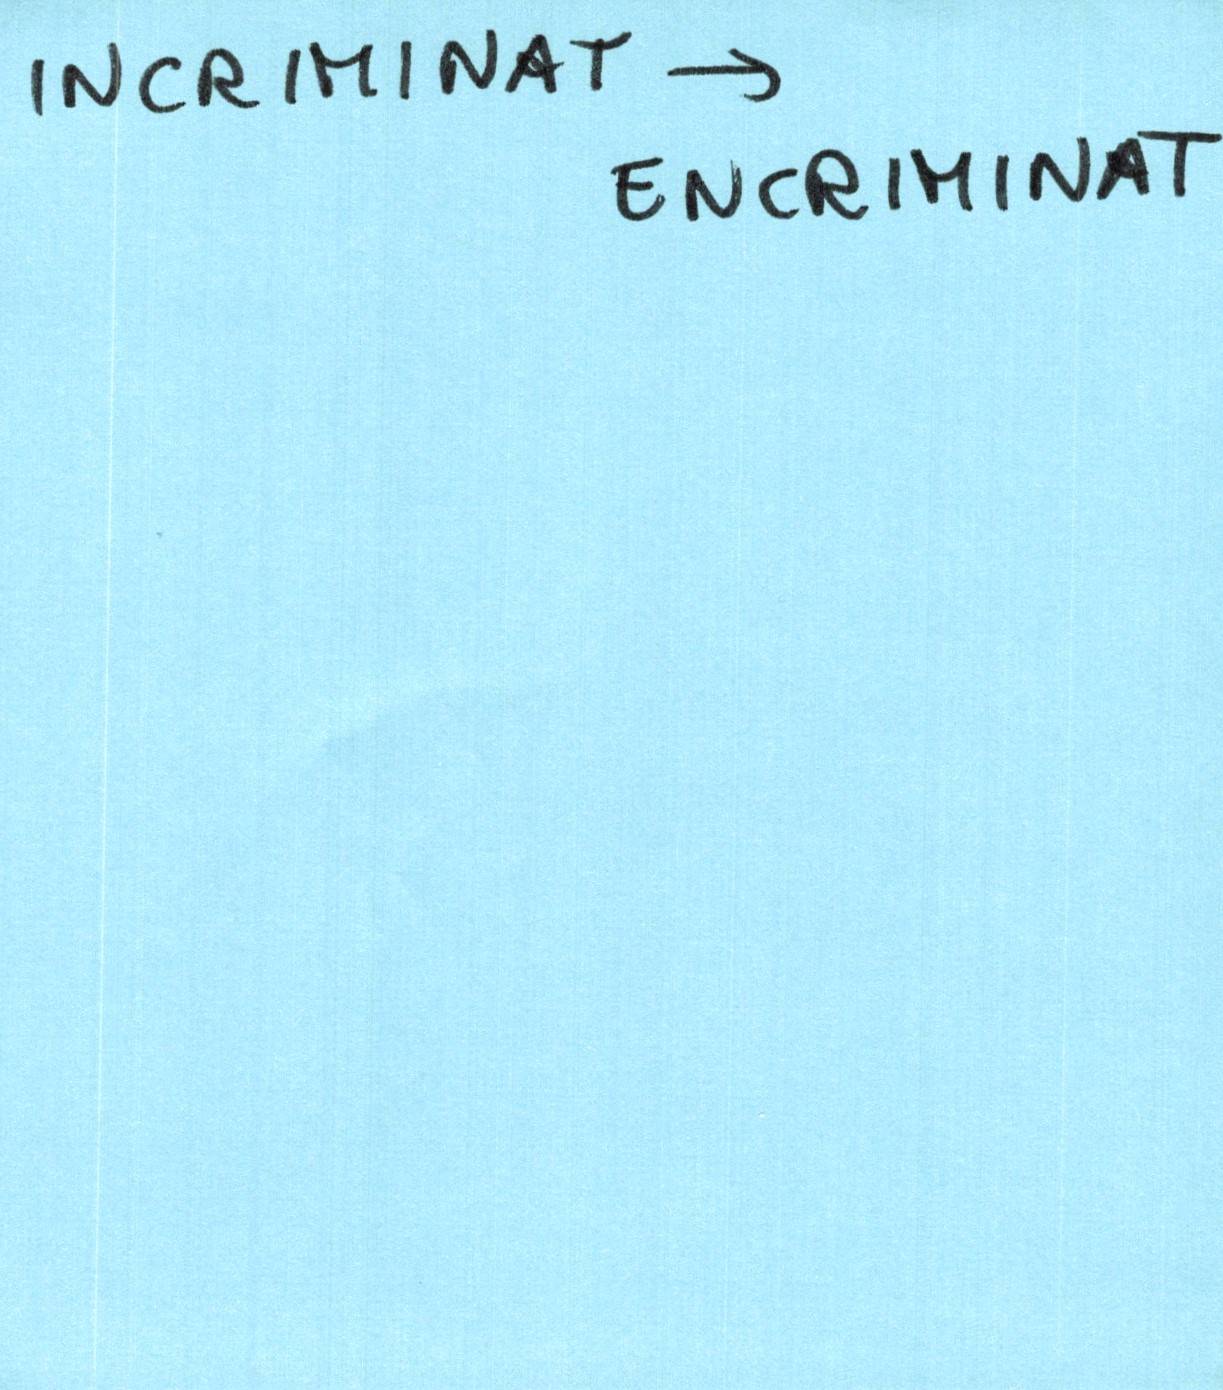 INCRIMINAT →
ENCRIMINAT